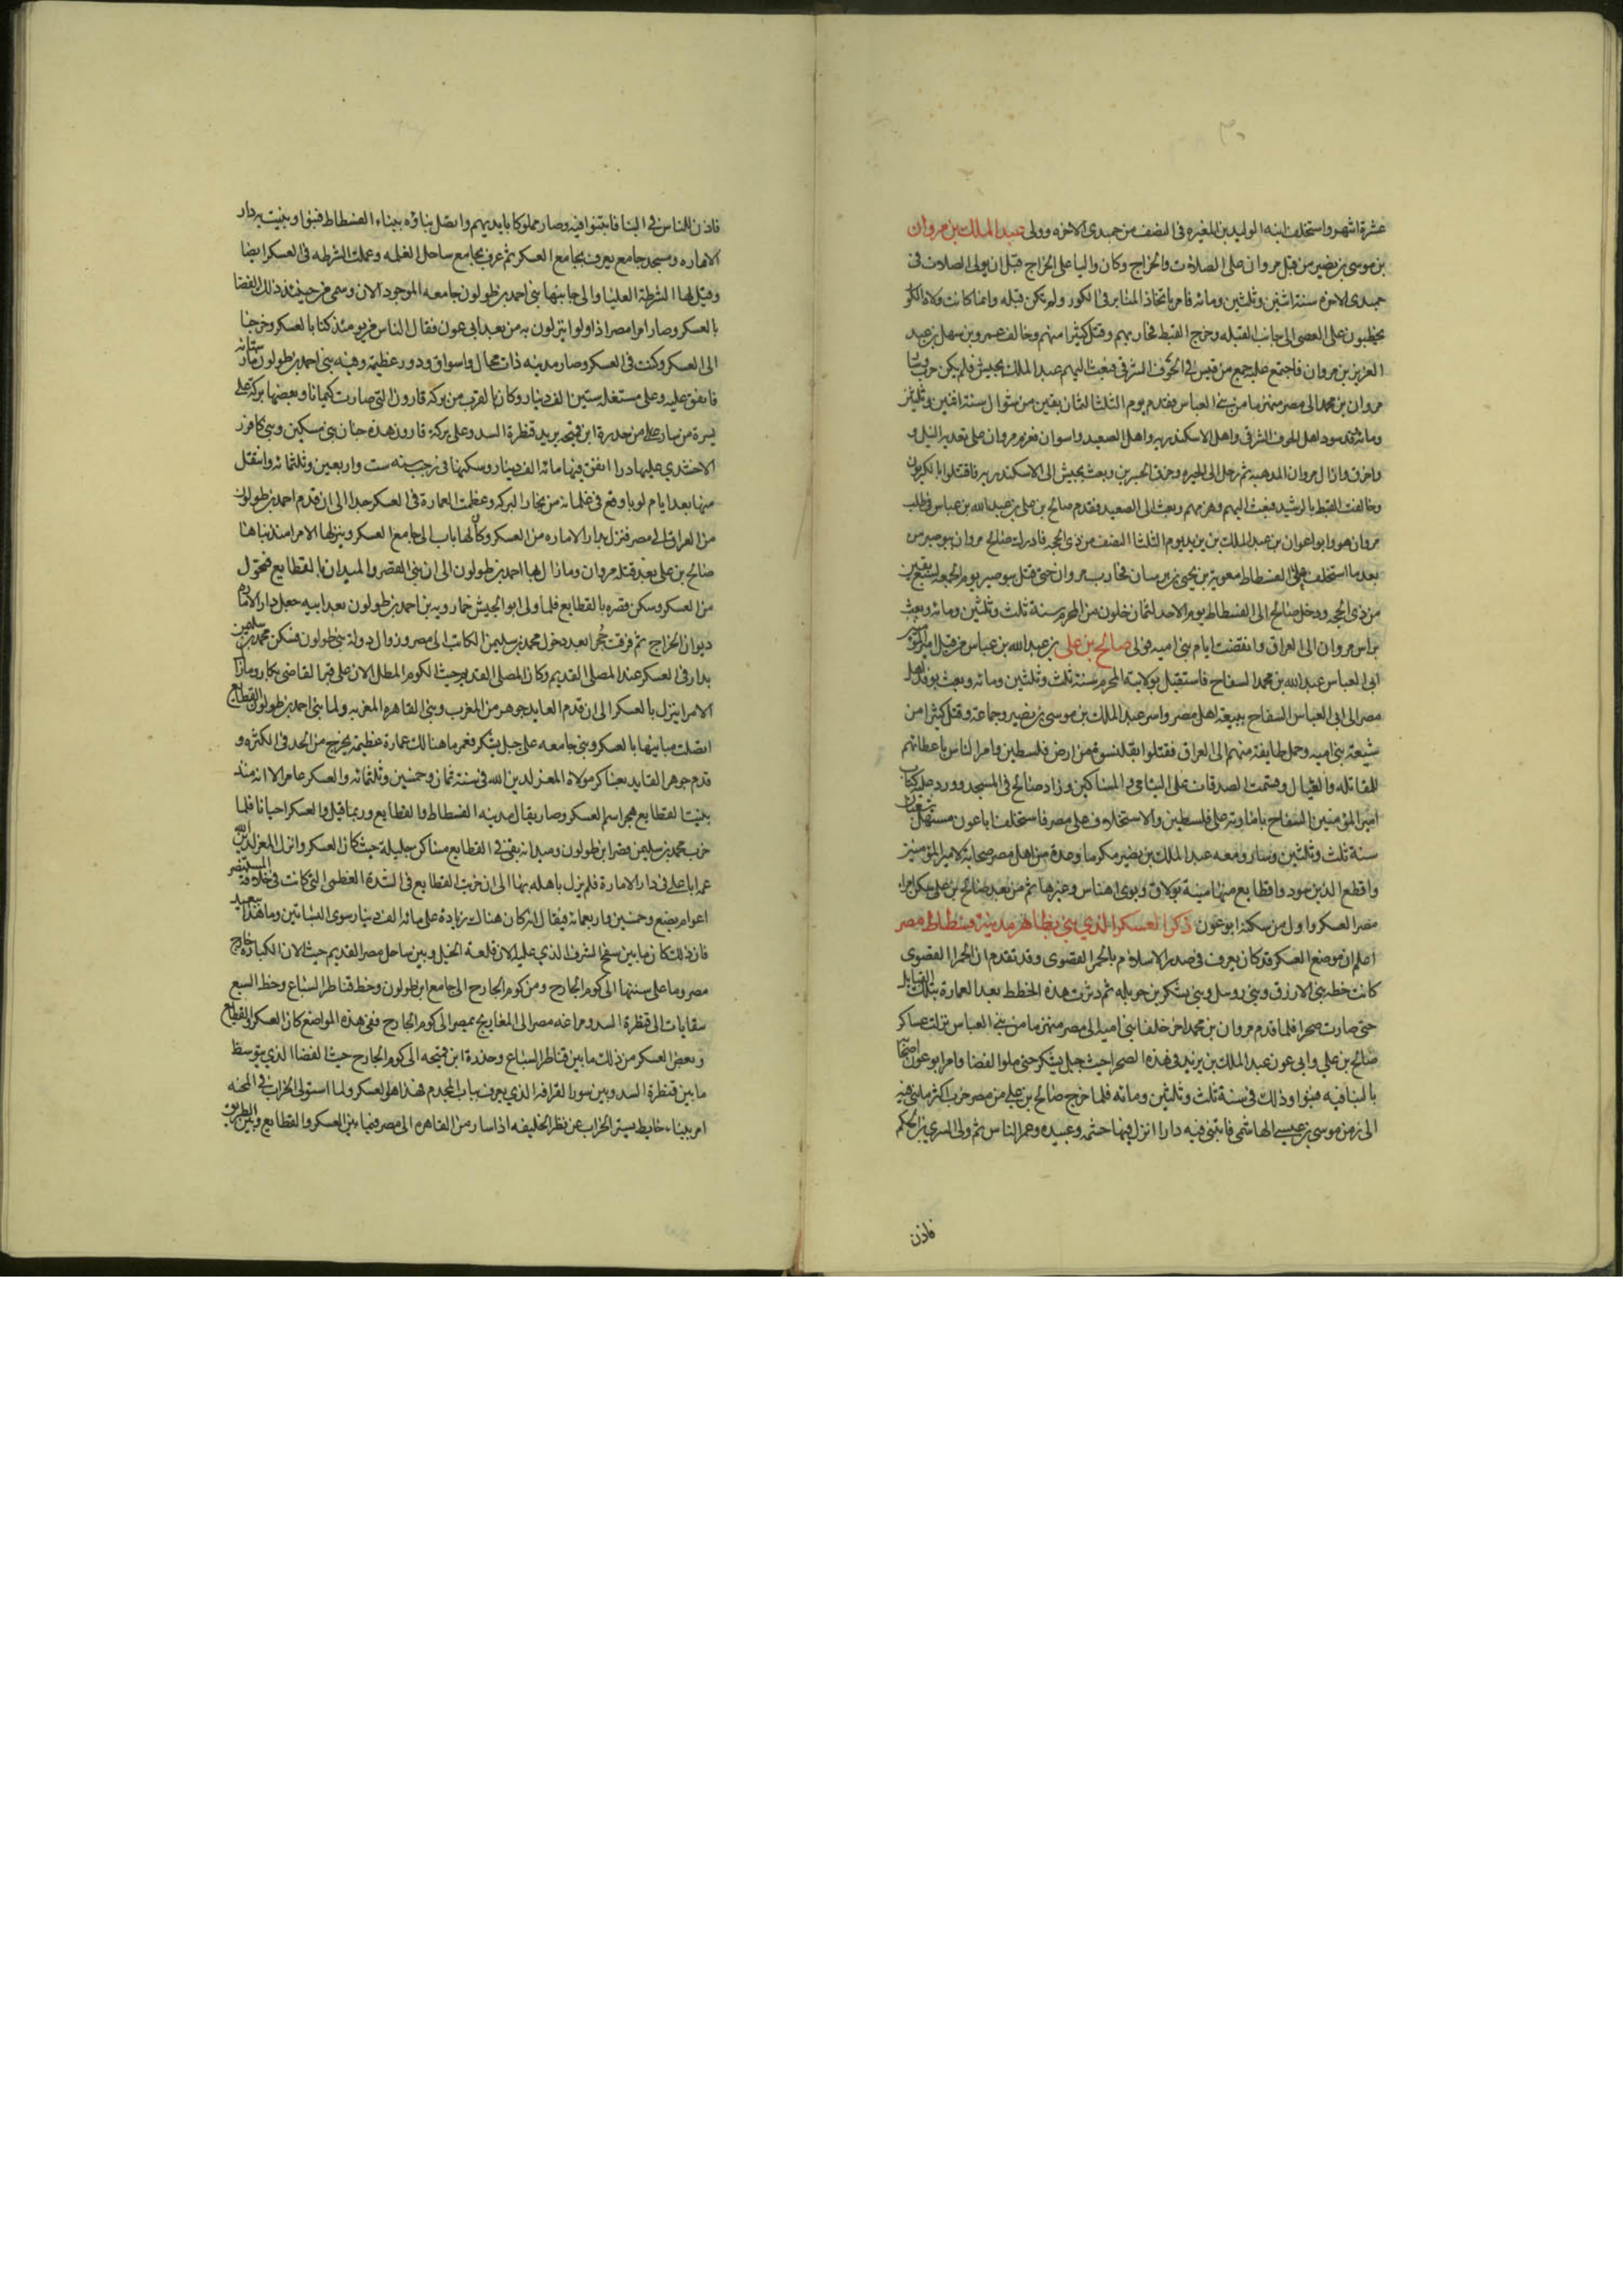 عشرة اشهر واستخلف ابنه الوليد بن المغيره فى النصف من جمدى الاخره وولى عبد الملك بن مروان
بن موسى بن نصير من قبل مروان على الصلاة والخراج وكان واليا على الخراج قبل ان يولى الصلات فى
جمدى الاخره سنة اثنين وثلثين ومائه فامر باتخاذ المنابر فى الكور ولم تكن قبله وانما كانت ولاة الكور
يخطبون على العصى الى جانب القبله وخرج القبط فحاربهم وقتل كثيرا منهم وخالف عمرو بن سهل بن عبد
العزيز بن مروان فاجتمع عليه جمع من قيس فى الحوف الشرقى فبعث اليهم عبد الملك بجيش فلم يكن حرب وسار
مروان بن محمد الى مصر منهزما من بنى العباس فقدم يوم الثلثا لثمان بقين من شوال سنة اثنين وثلثين
ومائه وقد سود اهل الحوف الشرقى واهل الاسكندريه واهل الصعيد واسوان فعزم مروان على تعدية النيل و
واحرق دار ال مروان المذهبه ثم رحل الى الجيزه وخرق الجسرين وبعث بجيش الى الاسكندريه فاقتتلوا بالكريون
وخالفت القبط بالرشيد فبعث اليهم وهزمهم وبعث الى الصعيد فقدم صالح بن على بن عبد الله بن عباس فى طلب
مروان هو وابو اعوان بن عبد الملك بن يزيد يوم الثلثا النصف من ذى الحجه فادرك صالح مروان ببوصير من
بعد ما استخلف على الفسطاط معوية بن يحيى بن ريسان فحارب مروان حتى قتل ببوصير يوم الجمعه لسبع بقين
من ذى الحجه ودخل صالح الى الفسطاط يوم الاحد لثمان خلون من المحرم سنة ثلث وثلثين ومائه وبعث
براس مروان الى العراق وانقضت ايام بنى اميه فولى صالح بن على بن عبد الله بن عباس من قبل امير المومنين
ابى العباس عبد الله بن محمد السفاح فاستقبل بولايته المحرم سنة ثلث وثلثين ومائه وبعث بوفد اهل
مصر الى ابى العباس السفاح ببيعة اهل مصر واسر عبد الملك بن موسى بن نصير وجماعة وقتل كثيرا من
شيعة بنى اميه وحمل طايفة منهم الى العراق فقتلوا بقلنسوة من ارض فلسطين وامر الناس باعطاتهم
للمقاتله والعيال وقسمت الصدقات على اليتامى والمساكين وزاد صالح فى المسجد وورد عليه كتاب
امير المومنين السفاح بامارته على فلسطين والاستخلاف على مصر فاستخلف ابا عون مستهل شعبان
سنة ثلث وثلثين وسار ومعه عبد الملك بن نصير مكرما وعدة من اهل مصر صحابة لامير المومنين
واقطع الذين سود واقطايع منها منية بولاق وبوى اهناس وغيرها ثم من بعد صالح بن على سكن امراء
مصر العسكر واول من سكنه ابو عون ذكر العسكر الذي بنى بظاهر مدينة فسطاط مصر
اعلم ان موضع العسكر قد كان يعرف فى صدر الاسلام بالحمرا القصوى وقد تقدم ان الحمرا القصوى
كانت خطه بنى الازرق وبنى روبيل وبنى يشكر بن جزيله ثم دثرت هذه الخطط بعد العمارة بتلك القبايل
حتى صارت صحرا فلما قدم مروان بن محمد اخر خلفا بنى اميه الى مصر منهزما من بنى العباس نزلت عساكر
صالح بن علي وابى عون عبد الملك بن يزيد فى هذه الصحرا حيث جبل يشكر حتى ملوا الفضا وامر ابو عون اصحابه
بالبنا فيه فبنوا وذلك فى سنة ثلث وثلثين ومائه فلما خرج صالح بن على من مصر خرب اكثر ما بنى فيه
الى زمن موسى بن عيسى الهاشمى فابتنى فيه دارا انزل فيها حشمه وعبيده وعمر الناس ثم ولى السري بن الحكم
فاذن
فاذن للناس فى البنا فابتنوا فيه وصار مملوكا بايديهم واتصل بناؤه ببناء الفسطاط فبنوا وبنيت به دار
الاماره ومسجد جامع يعرف بجامع العسكر ثم عرف بجامع ساحل الغله وعملت الشرطه فى العسكر ايضا
وقيل لها الشرطة العليا والى جانبها بنى احمد بن طولون جامعه الموجود الان وسمى من حينئذ ذلك الفضا
بالعسكر وصار امرا مصر اذا ولوا ينزلون به من بعد ابى عون فقال الناس من يومئذ كنا بالعسكر وخرجنا
الى العسكر وكنت فى العسكر وصار مدينه ذات محال واسواق ودور عظيمة وفيه بنى احمد بن طولون مارستانه
فانفق عليه وعلى مستغله ستين الف دينار وكان بالقرب من بركه قارون التى صارت كيمانا وبعضها بركة على
يسرة من سار من حدرة ابن قميحه يريد قنطرة السد وعلى بركة قارون هذه جنان بنى مسكين وبنى كافور
الاخشدي عليها دارا انفق فيها مائه الف دينار وسكنها فى رجب سنه ست واربعين وثلثمائه وانتقل
منها بعد ايام لوبا وقع فى غلمانه من بخار البركه وعظمت العمارة فى العسكر جدا الى ان قدم احمد بن طولون
من العراق الى مصر فنزل بدار الاماره من العسكر وكان لها باب الى جامع العسكر وينزلها الامرا منذ بناها
صالح بن على بعد قتله مروان وما زال بها احمد بن طولون الى ان بنى القصر والميدان بالقطايع فتحول
من العسكر وسكن قصره بالقطايع فلما ولى ابو الجيش خمارويه بن احمد بن طولون بعد ابيه جعل دار الاماره
ديوان الخراج ثم فرقت حجرا بعد دخول محمد بن سليمن الكاتب الى مصر وزوال دولة بنى طولون فسكن محمد بن سليمن
بدار فى العسكر عند المصلى القديم وكان المصلى القديم حيث الكوم المطل الان على قبر القاضى بكار وما زالت
الامرا ينزل بالعسكر الى ان قدم القايد جوهر من المغرب وبنى القاهره المعزيه ولما بنى احمد بن طولون القطايع
اتصلت مبانيها بالعسكر وبنى جامعه على جبل يشكر فعمر ما هنالك عمارة عظيمة يخرج من الحد فى الكثره و
قدم جوهر القايد بعساكر مولاه المعز لدين الله فى سنة ثمان وخمسين وثلثمائه والعسكر عامر الا انه منذ
بنيت القطايع هجر اسم العسكر وصار يقال مدينه الفسطاط والقطايع وربما قيل والعسكر احيانا فلما
خرب محمد بن سليمن قصر ابن طولون وميدانه بقى فى القطايع مساكن جليلة حيث كان العسكر وانزل المعز لدين الله
عمه ابا على فى دار الامارة فلم يزل باهله بها الى ان خربت القطايع فى الشدة العظمى التى كانت فى خلافة المستنصر
اعوام بضع وخمسين واربعمائة فيقال انه كان هناك زيادة على مائه الف دينار سوى البساتين وما هذا ببعيد
فان ذلك كان ما بين سفح الشرف الذي عليه الان قلعة الجبل وبين ساحل مصر القديم حيث الان الكباره خارج
مصر وما على سمتها الى كوم الجارح ومن كوم الجارح الى جامع ابن طولون وخط قناطر السباع وخط السبع
سقايات الى قنطرة السد ومراغه مصر الى المغاريج بمصر الى كوم الجارح ففى هذه المواضع كان العسكر والقطايع
وبعض العسكر من ذلك ما بين قناطر السباع وحدرة ابن قميحه الى كوم الجارح حيث الفضا الذي يتوسط
ما بين قنطرة السد وبين سور القرافه الذي يعرف بباب المجدم فهذا هو العسكر ولما استولى الخراب فى المحنه
امر ببناء حايط يستر الخراب عن نظر الخليفه اذا سار من القاهره الى مصر فيما بين العسكر والقطايع وبين الطريق